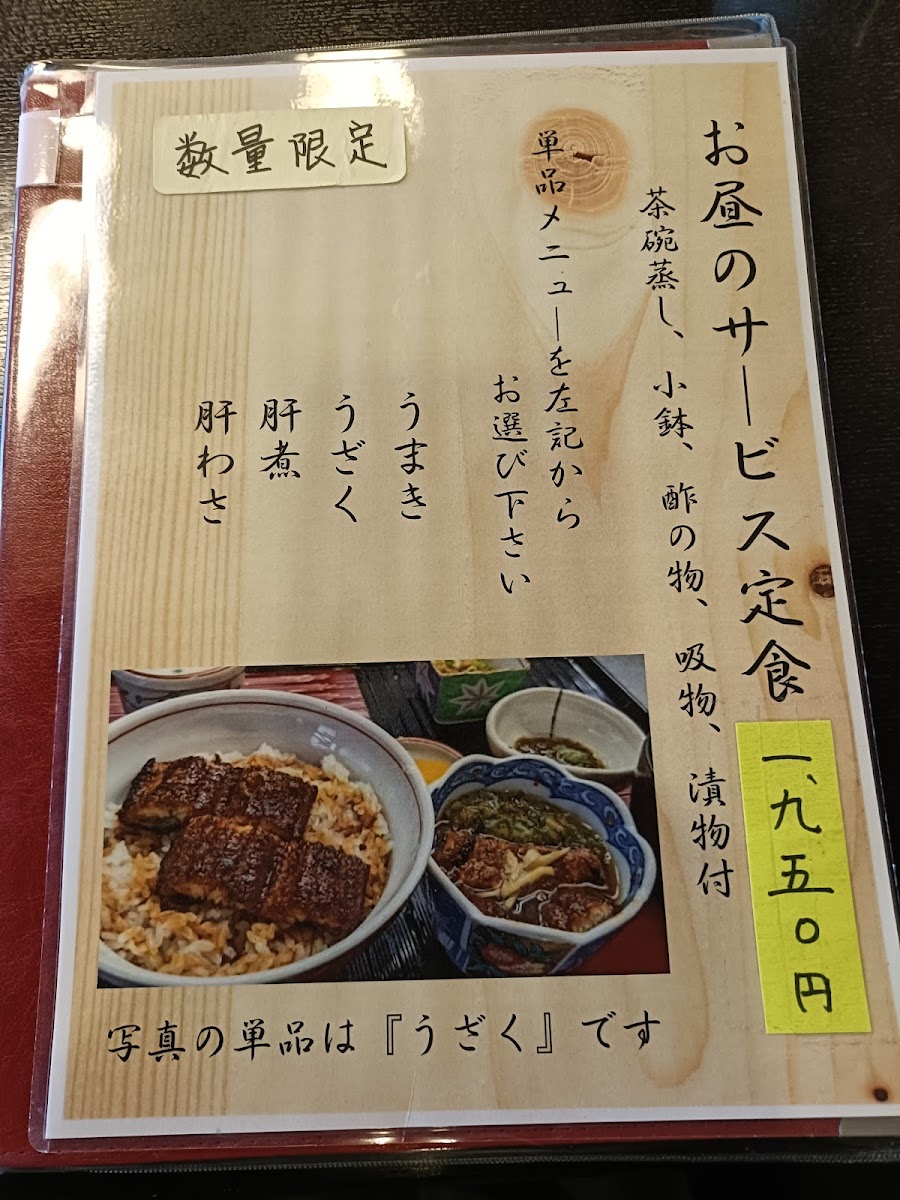 お昼のサービス定食
一、九五〇円
茶碗蒸し、小鉢、酢の物、吸物、漬物付
単品メニューを左記から
お選び下さい
うまき
うざく
肝煮
肝わさ
数量限定
写真の単品は『うざく』です